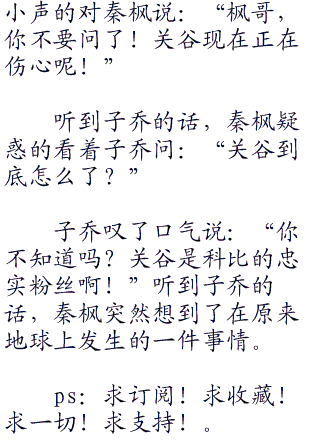 小声的对秦枫说：“枫哥，
你不要问了！关谷现在正在
伤心呢！”
听到子乔的话，秦枫疑
惑的看着子乔问：“关谷到
底怎么了？”
子乔叹了口气说：“你
不知道吗？关谷是科比的忠
实粉丝啊！”听到子乔的
话，秦枫突然想到了在原来
地球上发生的一件事情。
ps：求订阅！求收藏！
求一切！求支持！。